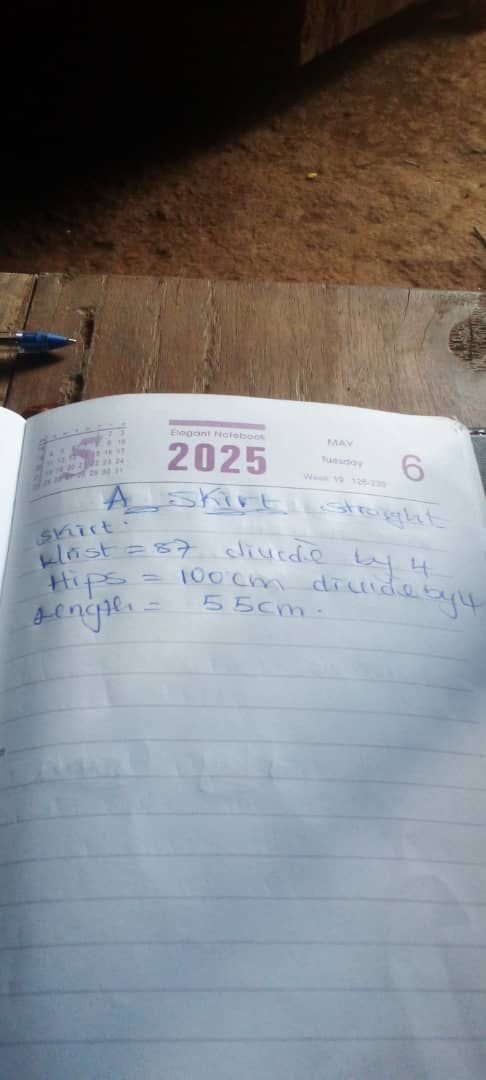 Elegant Notebook
2025
MAY
Tuesday
Week 19 126-239
6
A Skirt straight
skirt.
Waist = 87 divide by 4
Hips = 100cm divide by 4
Length = 55cm.